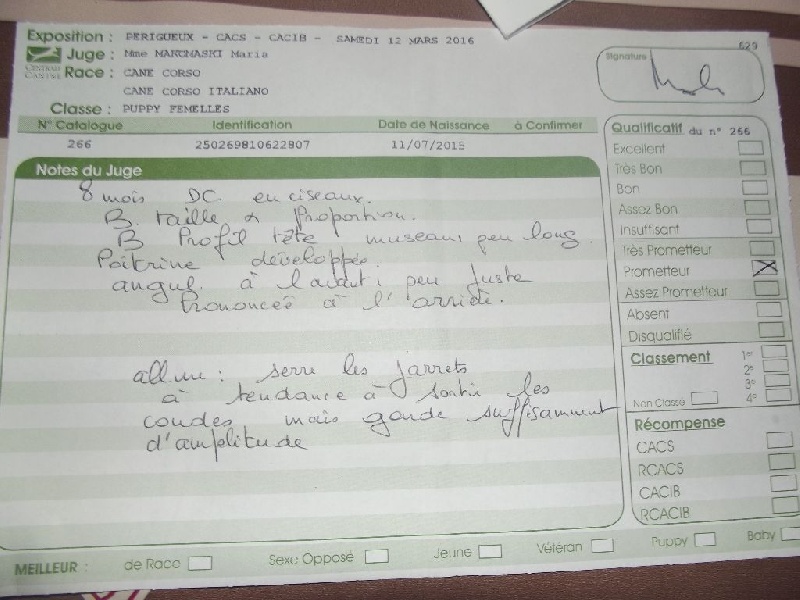 Exposition : PERIGUEUX - CACS - CACIB - SAMEDI 12 MARS 2016
629
Juge : Mme MARCNASKI Maria
CENTRALE CANINE
Race : CANE CORSO
CANE CORSO ITALIANO
Classe : PUPPY FEMELLES
Signature
N° Catalogue Identification Date de Naissance à Confirmer
266 250269810622807 11/07/2015
Qualificatif du n° 266
Excellent
Très Bon
Bon
Assez Bon
Insuffisant
Très Prometteur
Prometteur
Assez Prometteur
Absent
Disqualifié
Classement 1er
2e
3e
Non Classé 4e
Récompense
CACS
RCACS
CACIB
RCACIB
Notes du Juge
8 mois DC. en ciseaux.
B. taille & Proportion.
B Profil tête museau peu long.
Poitrine développée
angul. à l'avant: peu juste
Prononcée à l'arrière.
allure: serre les jarrets
à tendance à sortir les
coudes mais garde suffisamment
d'amplitude
MEILLEUR : de Race Sexe Opposé Jeune Vétéran Puppy Baby